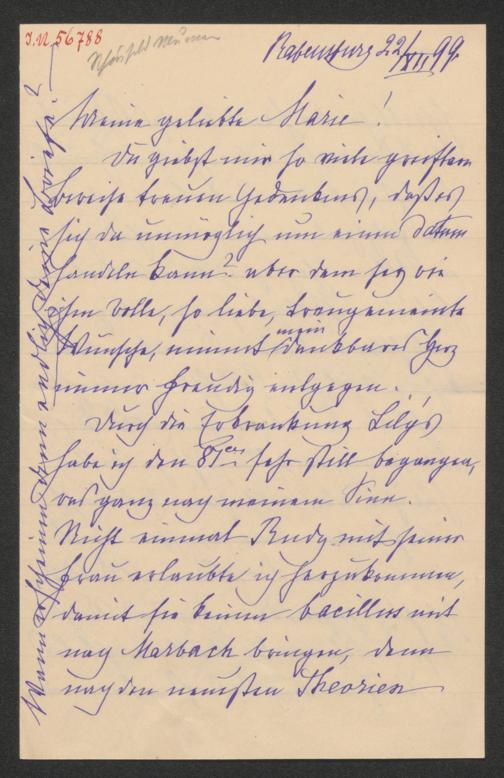 J.N. 56788
Schönfeld Neumann
Rabensburg 22/XII, 99.
Meine geliebte Marie!
Du giebst mir so viele
Beweise treuen Gedenkens, daß es
sich da unmöglich um einen Datum
handeln kann? aber dem sey wie
ihm wolle, so liebe, treugemeinte
Wünsche, nimmt mein dankbares Herz
immer freudig entgegen.
Durch die Erkrankung Lily's
habe ich den 81er sehr still begangen,
was ganz nach meinem Sinn.
Nicht einmal Rudy mit seiner
Frau erlaubte ich herzukommen,
damit sie keinen bacillus mit
nach Marbach bringen, denn
nach den neusten Theorien
Wann erscheinen denn endlich deine Briefe?